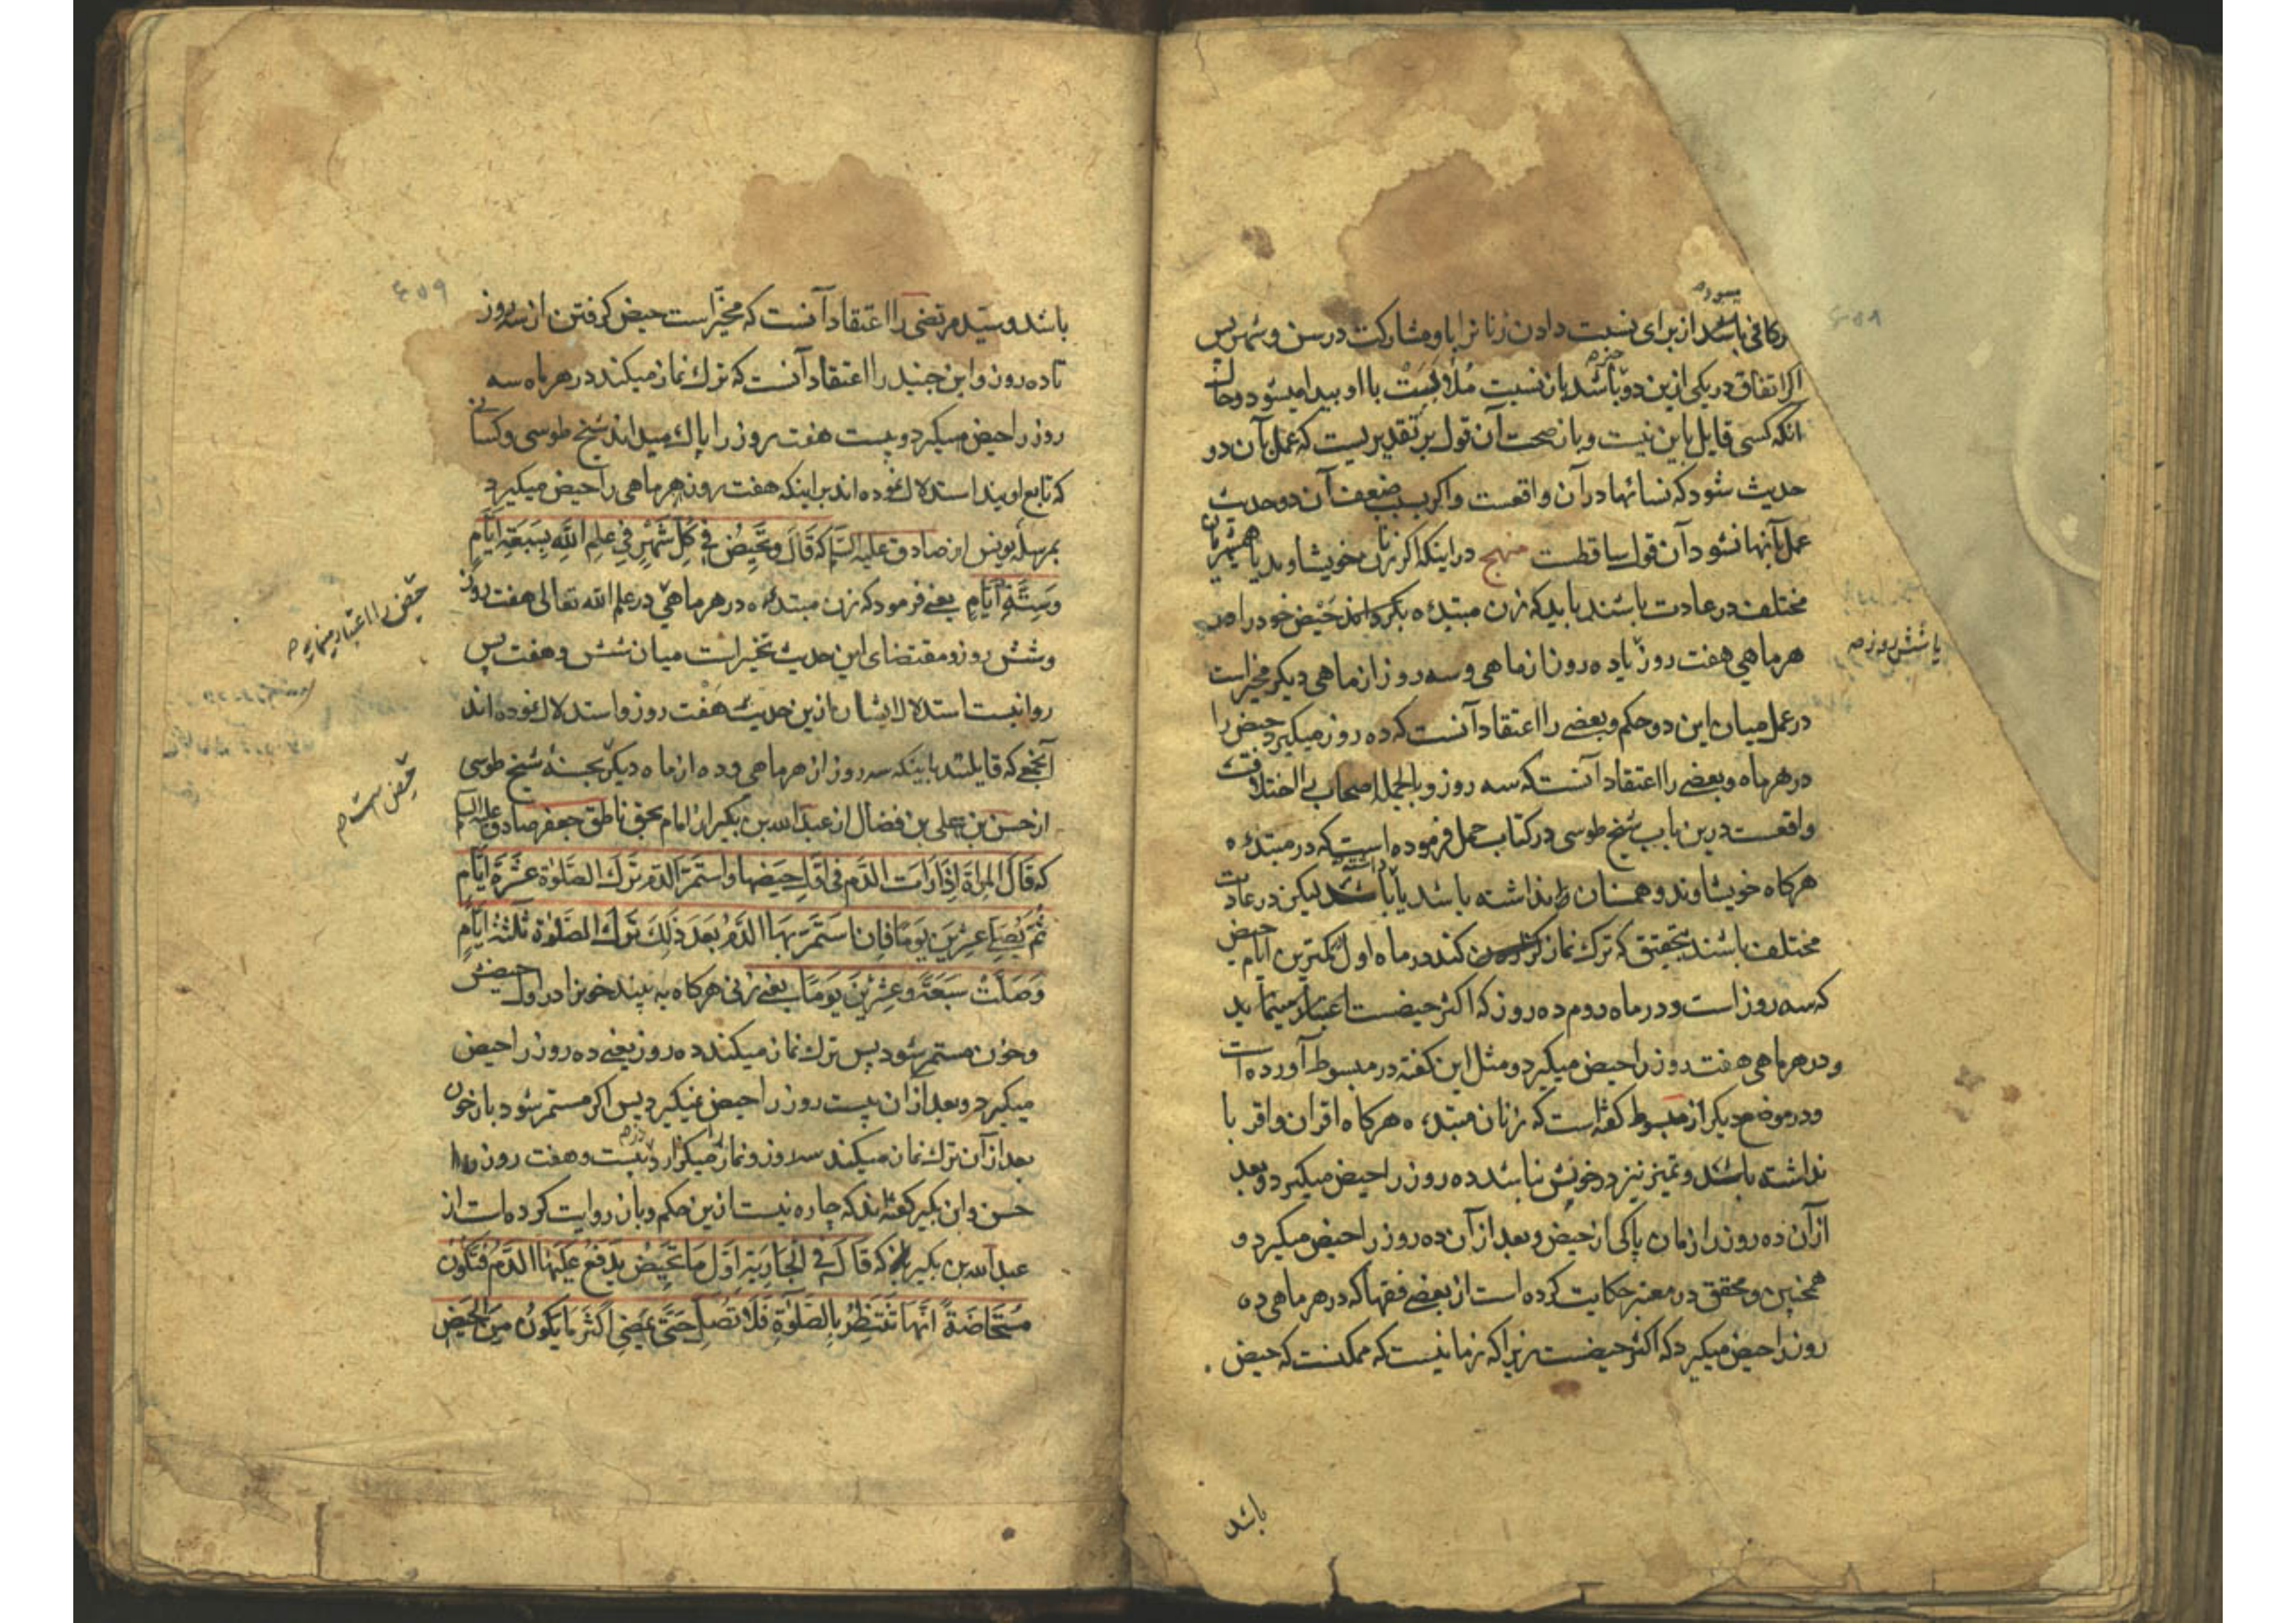 ۴۵۸
کافی باشد از برای نسبت دادن زنانرا باو مشارکت در سن و شهر پس
اکر اتفاق در یکی ازین دو باشد بان نسبت ملابست با او پیدا میشود و حال
انکه کسی قایل باین نیست و بان صحت آن قول بر تقدیریست که عمل بآن دو
حدیث شود که نسائها در آن واقعست و اکر بسبب ضعف آن دو حدیث
عمل بآنها نشود آن قول ساقطست منهج در اینکه اکر زنان خویشاوند یا همشهریان
مختلف در عادت باشند باید که زن مبتدئه بکرداند حیض خود را در
هر ماهی هفت روز یا ده روز از ماهی و سه روز از ماهی دیکر مخیر است
یا شش روز
در عمل میان این دو حکم و بعضی را اعتقاد آنست که ده روز میکیرد حیض را
در هر ماه و بعضی را اعتقاد آنست که سه روز و بالجمله اصحاب بی اختلافت
واقعست درین باب شیخ طوسی در کتاب جمل فرموده است که در مبتدئه
هرکاه خویشاوند و همسان نداشته باشد یا باشد لیکن در عادت
مختلف باشند بتحقیق که ترک نماز کند در ماه اول کمترین ایام حیض
که سه روز است و در ماه دوم ده روز که اکثر حیضست اعتبار مینماید
و در هر ماهی هفت روز را حیض میکیرد و مثل این کفته در مبسوط آورده است
و در موضع دیکر از مبسوط کفته است که زنان مبتدءه هرکاه اقران و اقربا
نداشته باشد و تمیز نیز در خونش نباشد ده روز را حیض میکیرد و بعد
از آن ده روز را زمان پاکی از حیض و بعد از آن ده روز را حیض میکیرد و
همچنین و محقق در معتبر حکایت کرده است از بعضی فقها که در هر ماهی ده
روز را حیض میکیرد که اکثر حیضست زیرا که زمانیست که ممکنست که حیض
باشد
۴۵۹
باشد و سید مرتضی را اعتقاد آنست که مخیّر است حیض کرفتن از سه روز
تا ده روز و ابن جنید را اعتقاد آنست که ترک نماز میکند در هر ماه سه
روز را حیض میکیرد و بیست هفت روز را پاک میداند شیخ طوسی و کسانی
که تابع اویند استدلال نموده اند بر اینکه هفت روز هر ماهی را حیض میکیرد
بمرسله یونس از صادق علیه السلام که قَالَ وَ تَحَیَّضُ فِی کُلِّ شَهْرٍ فِی عِلمِ اللّٰهِ بِسَبعَةِ اَیَّامٍ
وَسِتَّةِ اَیَّامٍ یعنی فرمود که زن مبتدئه در هر ماهی در علم الله تعالی هفت روز
حیض را اعتبار مینماید
و شش روز و مقتضای این حدیث تخییر است میان شش و هفت پس
روا نیست استدلال ایشان ازین حدیث هفت روز و استدلال نموده اند
آنجمعی که قایلند باینکه سه روز از هر ماهی و ده از ماه دیکر بحسنهٔ شیخ طوسی
حیض است
از حسن بن علی بن فضال از عبد الله بن بکیر از امام بحق ناطق جعفر صادق علیه السلام
که قَالَ المراة اِذَا رَاَت الدَّم فی اوّل حَیضها و استَمرَّ الدّم تَرَک الصَّلوة عَشَرَة اَیَّام
ثُمَّ تُصَلّی عِشرِین یَومًا فَاِن اِستَمَرَّ بِهَا الدَّمُ بَعدَ ذٰلِکَ تَرَک الصَّلوة ثَلثَة اَیَّامٍ
وَصَلَّتْ سَبعَةً وَعِشرِینَ یَومًا یعنی زنی هرکاه به بیند خونرا در اول حیضش
و خون مستمر شود پس ترک نماز میکند ده روز یعنی ده روز را حیض
میکیرد و بعد از آن بیست روز را حیض نمیکیرد پس اکر مستمر شود باز خون
بعد از آن ترک نماز میکند سه روز و نماز میکزارد بیست و هفت روز
حسن و ابن بکیر کفته اند که چاره نیست ازین حکم و باز روایت کرده است از
عبد الله بن بکیر که قَالَ فی الجَارِیَةِ اَوَّل مَا تَحِیضُ یَدفَعُ عَلَیهَا الدَّمُ فَتَکُونُ
مُستَحَاضَةً اَنَّهَا تَنتَظِرُ بِالصَّلوٰةِ فَلَا تُصَلِّی حَتّٰی یَمضِی اَکثَرُ مَا یَکُونُ مِنَ الحَیضِ